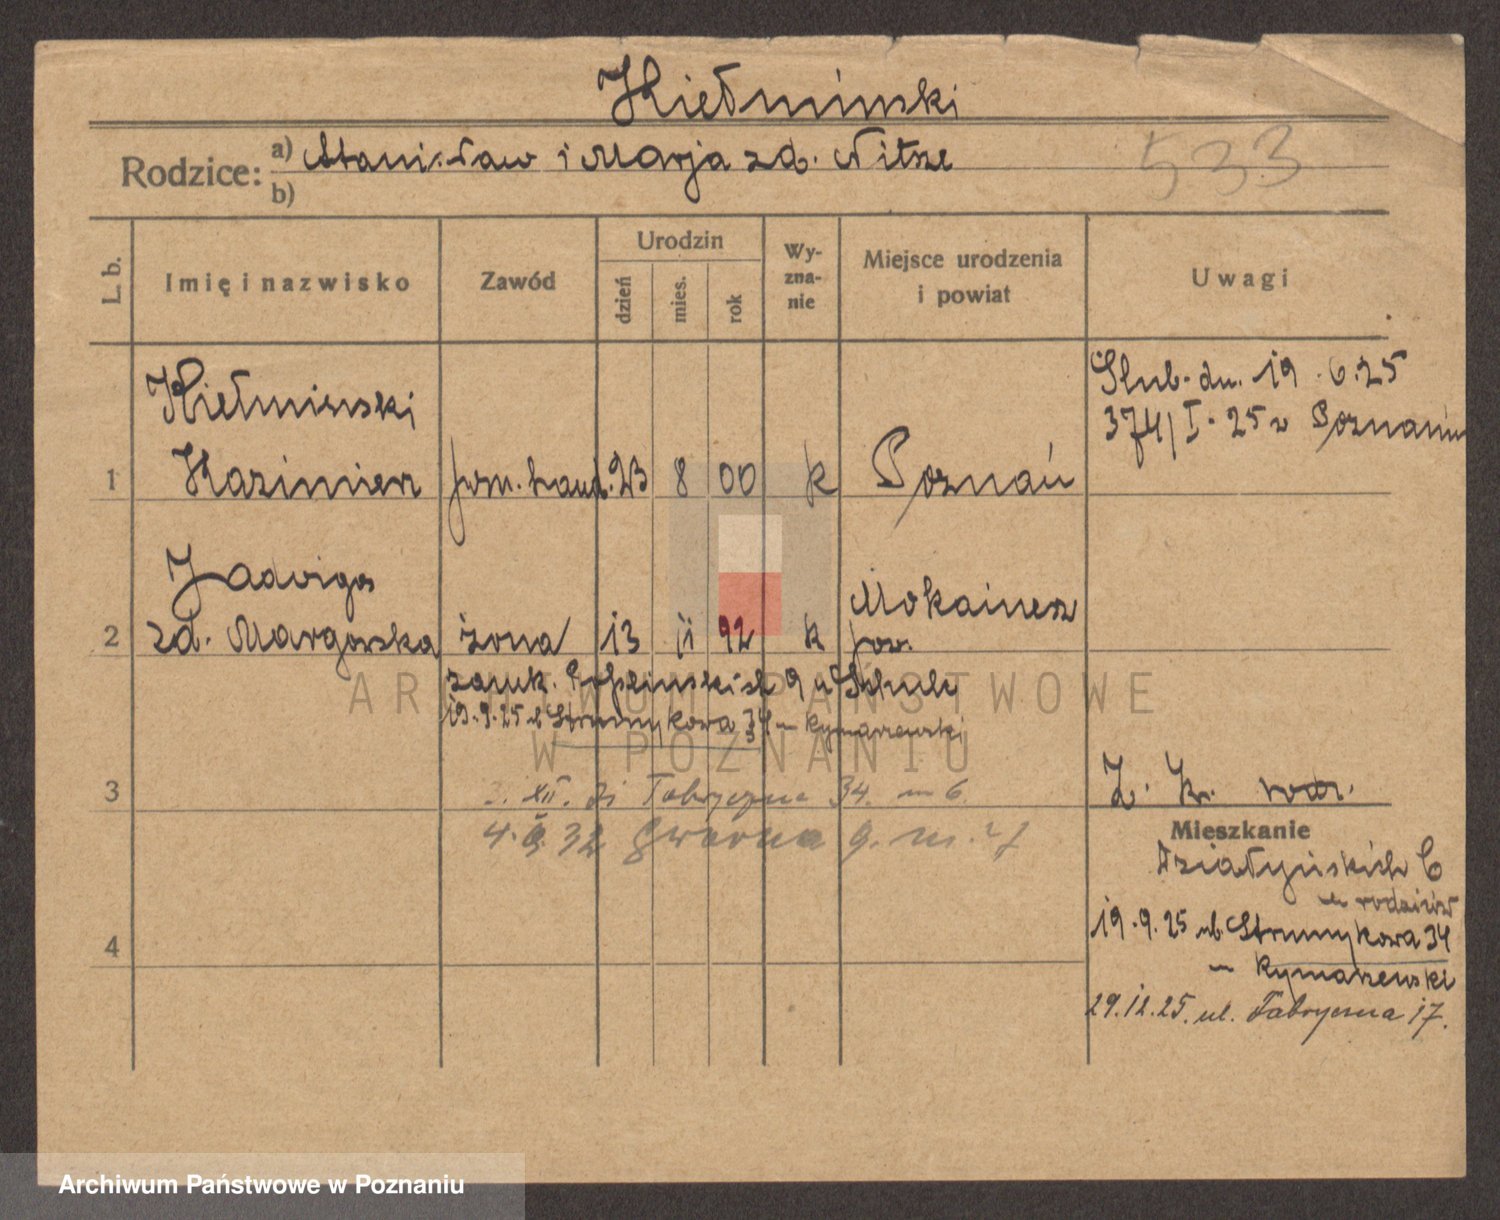 Kiełminski
Rodzice: a) Stanisław i Marja zd. Nitsze
b)
533
L. b.
Imię i nazwisko
Zawód
Urodzin
dzień
mies.
rok
Wy-
zna-
nie
Miejsce urodzenia
i powiat
Uwagi
Ślub. dn. 19.6.25
374/I. 25 w Poznaniu
Kiełminski
1 Kazimierz pom. hand. 23 8 00 k Poznań
Jadwiga
2 zd. Margowska żona 13 11 92 k
pow.
zamk. 9 u
19.9.25 ul. Strumykowa 34 Rymarzewski
ARCHIWUM PAŃSTWOWE
W POZNANIU
3
XII. 31 Fabryczna 34. m 6
4. 32 Gwarna 9. m. 7
Mieszkanie
Działyńskich 6
u rodziców
19.9.25 ul. Strumykowa 34
Rymarzewski
29.12.25. ul. Fabryczna 17.
4
Archiwum Państwowe w Poznaniu